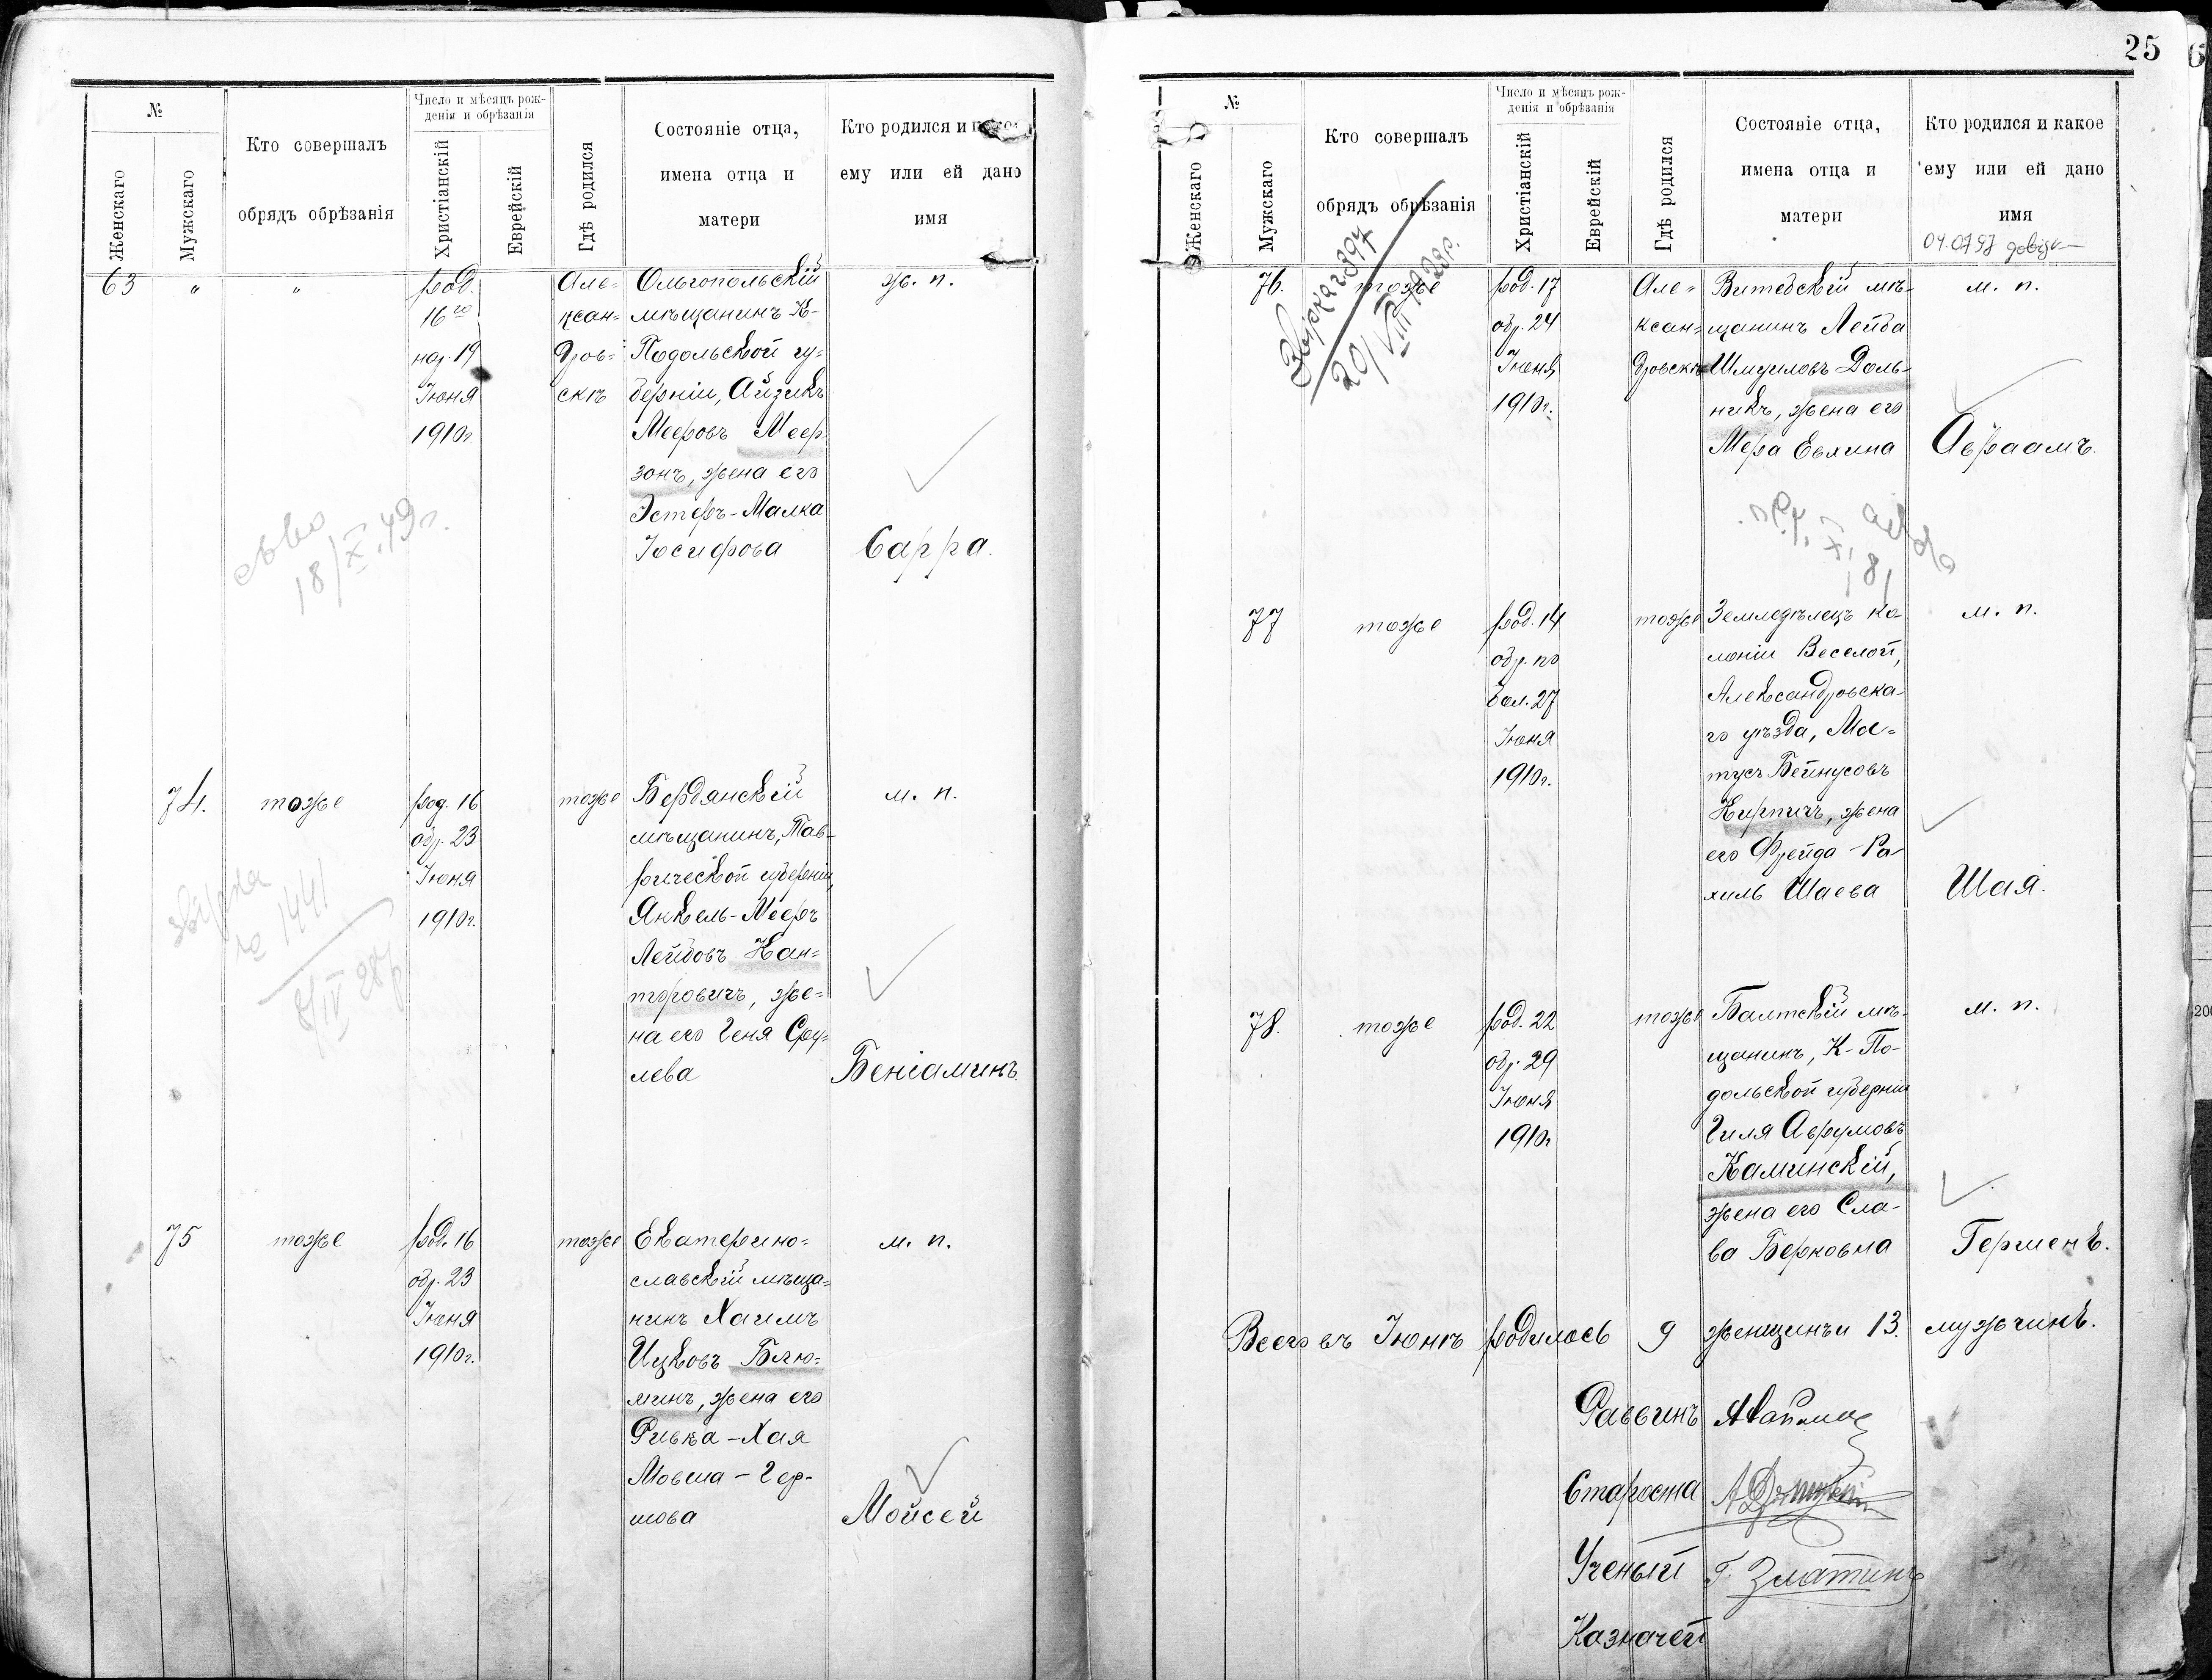 №
Женскаго
Мужскаго
Кто совершалъ
обрядъ обрѣзанія
Число и мѣсяцъ рож-
денія и обрѣзанія
Христіанскій
Еврейскій
Гдѣ родился
Состояніе отца,
имена отца и
матери
Кто родился и
ему или ей дано
имя
63
"
"
род.
16го
нар. 19
Іюня
1910г.
Але-
ксан=
дров=
скѣ
Ольгопольскій
мѣщанинъ К-
Подольской гу-
берніи, Айзикъ
Мееровъ Меер
зонъ, жена его
Эстеръ-Малка
Іосифова
ж. п.
Сарра.
18/X.49г.
74.
тоже
род. 16
обр. 23
Іюня
1910г.
тоже
Бердянскій
мѣщанинъ, Тав-
рической губерніи,
Янкель-Мееръ
Лейбовъ Кан=
торовичъ, же=
на его Геня Сру-
лева
м. п.
Беніаминъ.
звірка
№ 1441
8/IV 28р
75
тоже
род. 16
обр. 23
Іюня
1910г.
тоже
Екатерино=
славскій мѣща=
нинъ Хаимъ
Ицковъ Блю=
минъ, жена его
Ривка-Хая
Мовша-Гер-
шова
м. п.
Мойсей
25
№
Женскаго
Мужскаго
Кто совершалъ
обрядъ обрѣзанія
Число и мѣсяцъ рож-
денія и обрѣзанія
Христіанскій
Еврейскій
Гдѣ родился
Состояніе отца,
имена отца и
матери
Кто родился и какое
ему или ей дано
имя
04.07.97
76.
тоже
Звірка 2397
20/VIII 1929р.
род. 17
обр. 24
Іюня
1910г.
Але=
ксан=
дровскѣ
Витебскій мѣ-
щанинъ Лейба
Шмуиловъ Доль-
никъ, жена его
Мера Евлина
м. п.
Авраамъ.
77
тоже
род. 14
обр. по
бол. 27
Іюня
1910г.
тоже
Земледѣлецъ ко-
лоніи Веселой,
Александровска-
го уѣзда, Мо=
тусъ Бейнусовъ
Кирпичъ, жена
его Фрейда-Ра-
хиль Шаева
м. п.
Шая.
78.
тоже
род. 22
обр. 29
Іюня
1910г
тоже
Балтскій мѣ-
щанинъ, К-По-
дольской губерніи
Гиля Аврумовъ
Каминскій,
жена его Сла-
ва Берковна
м. п.
Гершенъ.
Всего въ Іюнѣ родилось 9 женщинъ и 13. мужчинъ.
Раввинъ
Староста
Ученый Г. Златинъ
Казначей